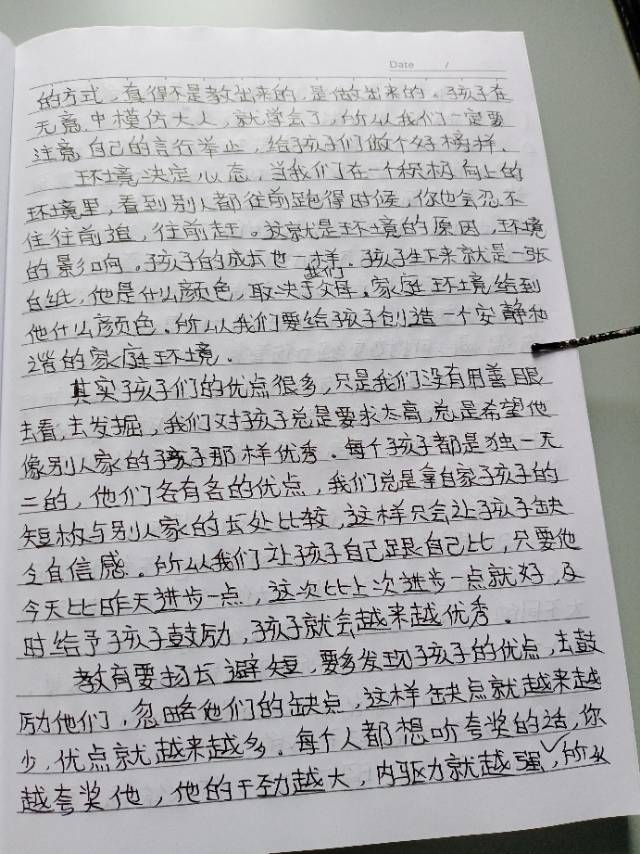 Date /
的方式，真得不是教出来的，是做出来的。孩子在
无意中模仿大人，就学会了，所以我们一定要
注意自己的言行举止，给孩子们做个好榜样。
环境决定心态，当我们在一个积极向上的
环境里，看到别人都往前跑得时候，你也会忍不
住往前追，往前赶。这就是环境的原因，环境
的影响。孩子的成长也一样。孩子生下来就是一张
我们
白纸，他是什么颜色，取决于父母。家庭环境给到
他什么颜色。所以我们要给孩子创造一个安静和
谐的家庭环境。
其实孩子们的优点很多，只是我们没有用善眼
去看，去发掘，我们对孩子总是要求太高，总是希望他
像别人家的孩子那样优秀。每个孩子都是独一无
二的，他们各有各的优点，我们总是拿自家子孩子的
短板与别人家的长处比较，这样只会让孩子缺
乏自信感。所以我们让孩子自己跟自己比，只要他
今天比昨天进步一点，这次比上次进步一点就好，及
时给予孩子鼓励，孩子就会越来越优秀。
教育要扬长避短，要多发现孩子的优点，去鼓
励他们，忽略他们的缺点，这样缺点就越来越
少，优点就越来越多。每个人都想听夸奖的话，你
越夸奖他，他的干劲越大，内驱力就越强，所以